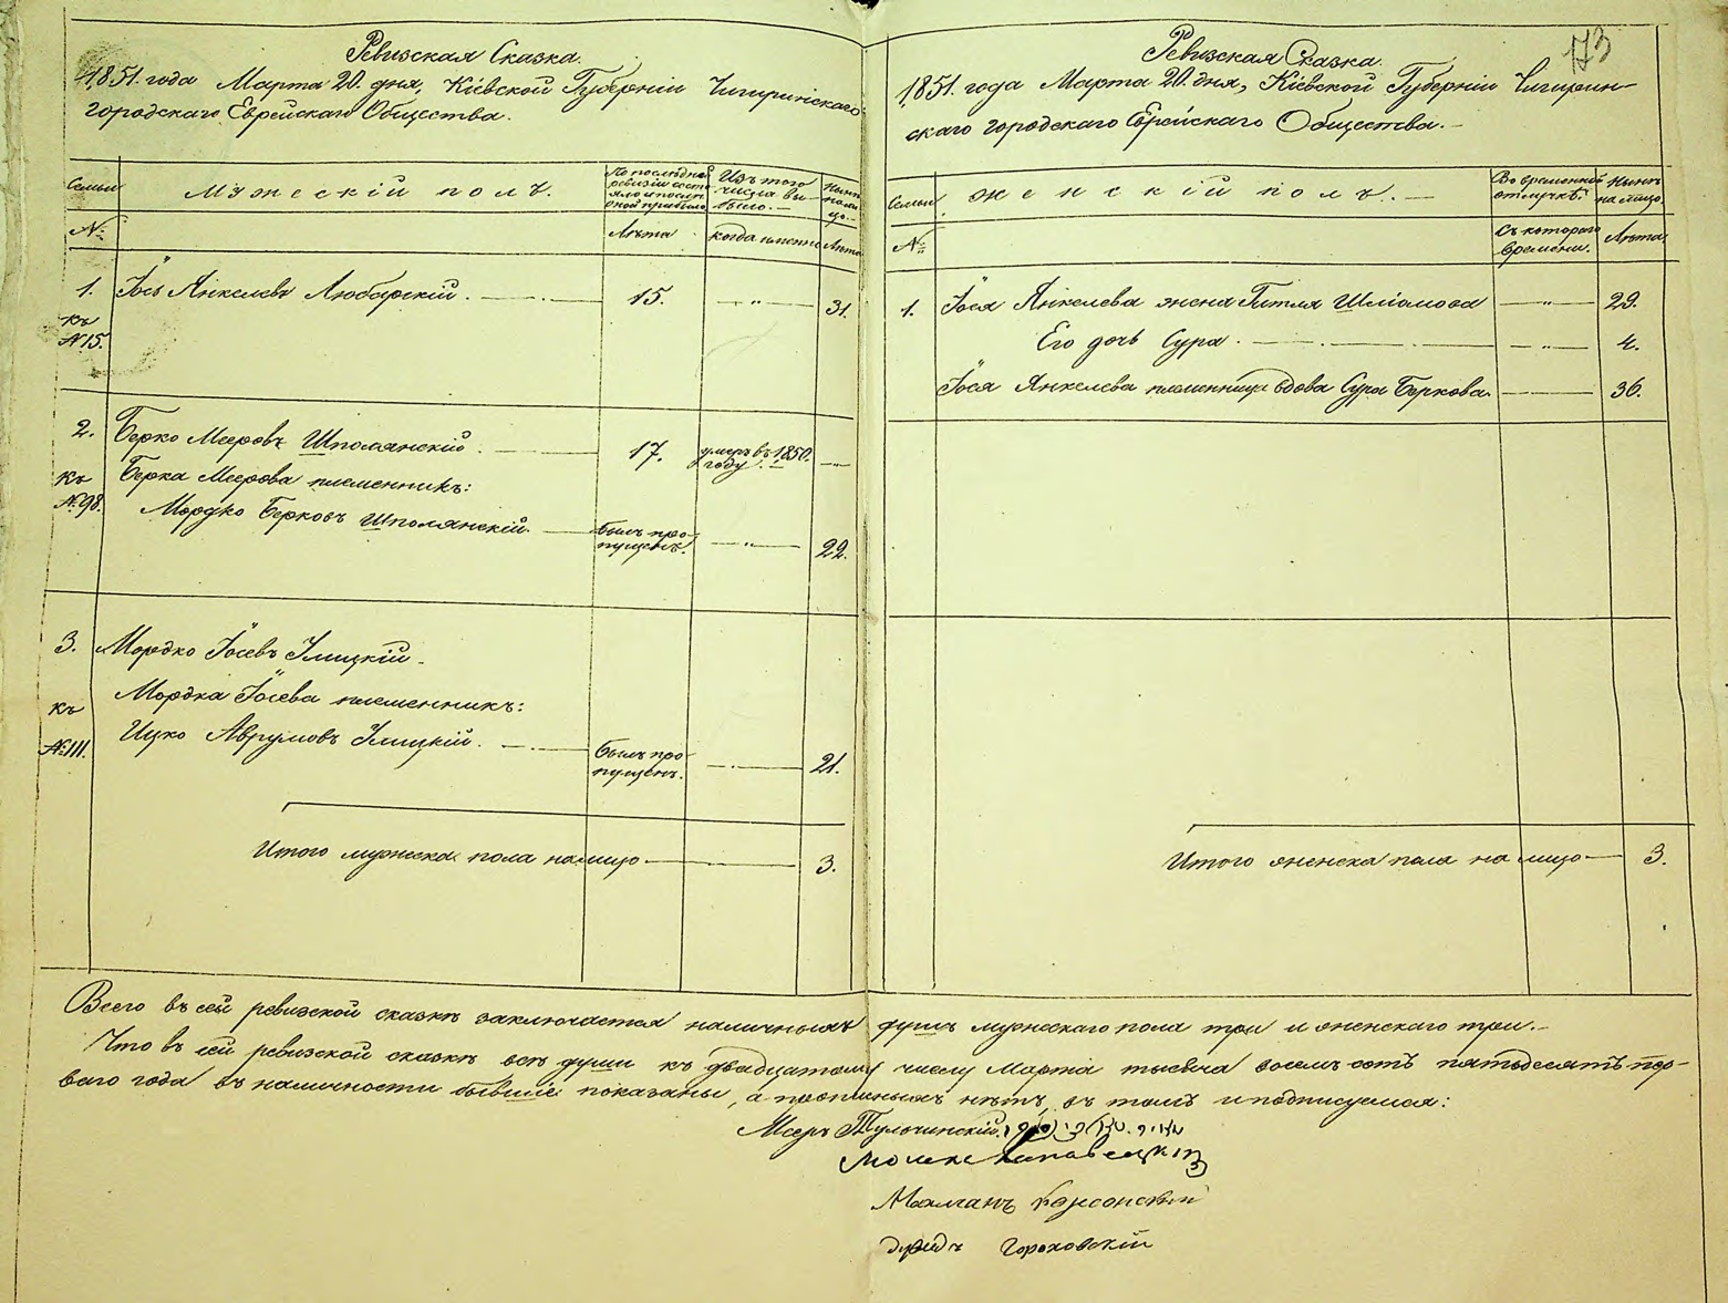 Ревизская Сказка.
1851. года Марта 20. дня, Кіевской Губерніи Чигиринскаго
городскаго Еврейскаго Общества.
Семьи
Мужескій полъ.
По послѣдней
ревизіи состо
яло и послѣ
оной прибыло
Изъ того
числа вы-
было.-
Нынѣ
на ли
цо.-
№
Лѣта
когда именно
Лѣта
1. Іось Янкелевъ Любарскій. 15. —"— 31.
къ
№15.
2. Берко Мееровъ Шполянскій. 17. умеръ въ 1850. —"—
году.
къ Берка Меерова племенникъ:
№98. Мордко Берковъ Шполянскій. былъ про- —"— 22.
пущенъ.
3. Мордко Іосевъ Улицкій.
къ Мордка Іосева племенникъ:
№111. Ицко Аврумовъ Улицкій. былъ про- 21.
пущенъ.
Итого мужеска пола налицо 3.
173
Ревизская Сказка.
1851. года Марта 20. дня, Кіевской Губерніи Чигирин-
скаго городскаго Еврейскаго Общества.-
Семьи
женскій полъ.-
Во временной
отлучкѣ.
Нынѣ
на лицо.
№
Съ котораго
времени.
Лѣта.
1. Іося Янкелева жена Гитля Шліомова —"— 29.
Его дочь Сура. —"— 4.
Іося Янкелева племенница вдова Сура Беркова. 36.
Итого женска пола на лицо 3.
Всего въ сей ревизской сказкѣ заключается наличныхъ душъ мужескаго пола три и женскаго три.-
Что въ сей ревизской сказкѣ всѣ души къ двадцатому числу Марта тысяча восемь сотъ пятьдесятъ пер-
ваго года въ наличности бывшіе показаны, а прописныхъ нѣтъ, въ томъ и подписуемся:
Мееръ Тульчинскій.
Гороховскій